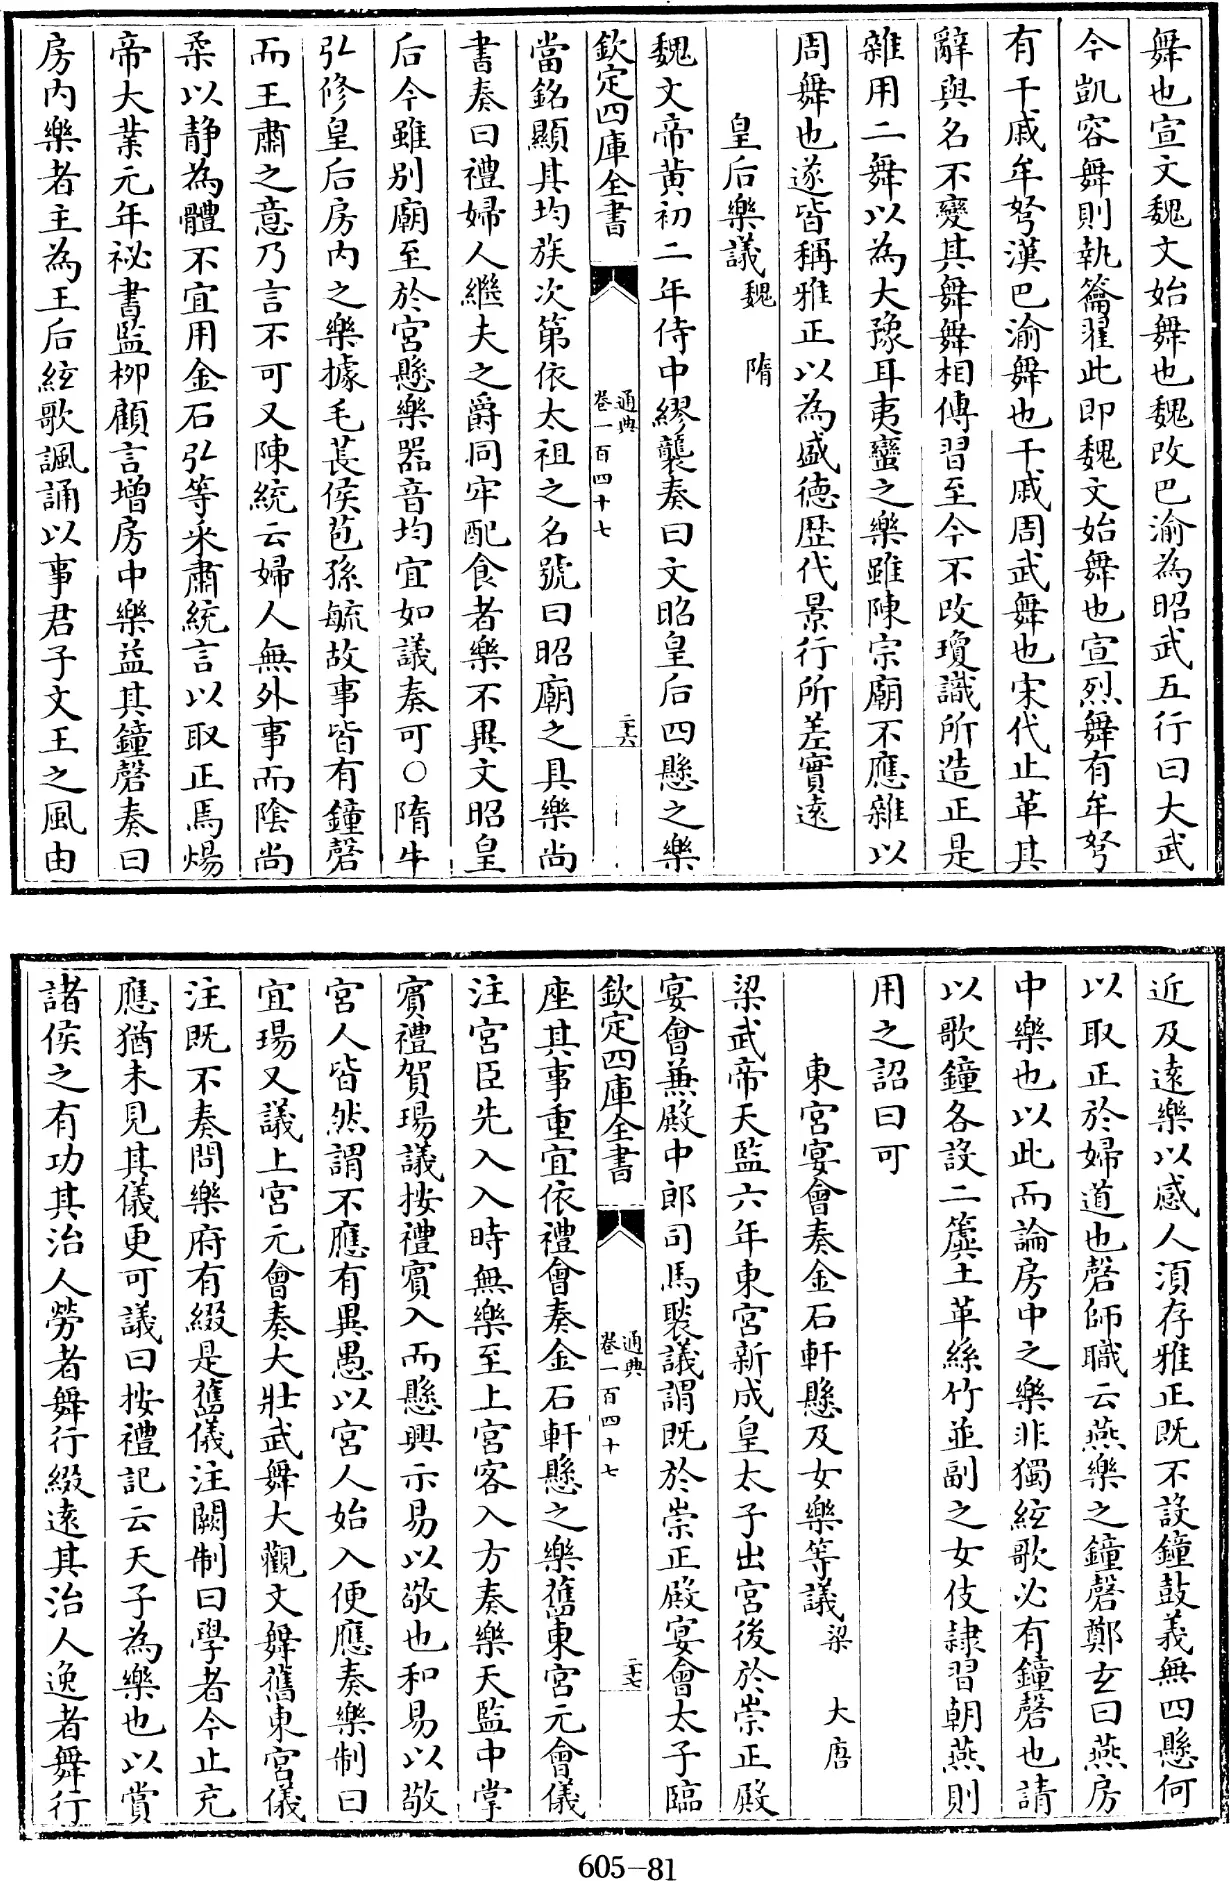 舞也宣文魏文始舞也魏改巴渝為昭武五行曰大武
今凱容舞則執籥翟此即魏文始舞也宣烈舞有牟弩
有干戚牟弩漢巴渝舞也干戚周武舞也宋代止革其
辭與名不變其舞舞相傳習至今不改瓊識所造正是
雜用二舞以為大豫耳夷蠻之樂雖陳宗廟不應雜以
周舞也遂皆稱雅正以為盛德歷代景行所差實遠
皇后樂議魏 隋
魏文帝黃初二年侍中繆襲奏曰文昭皇后四懸之樂
欽定四庫全書 通典 卷一百四十七 二十六
當銘顯其均族次第依太祖之名號曰昭廟之具樂尚
書奏曰禮婦人繼夫之爵同牢配食者樂不異文昭皇
后今雖別廟至於宮懸樂器音均宜如議奏可○隋牛
弘修皇后房內之樂據毛萇侯苞孫毓故事皆有鐘磬
而王肅之意乃言不可又陳統云婦人無外事而陰尚
柔以靜為體不宜用金石弘等采肅統言以取正焉煬
帝大業元年祕書監柳顧言增房中樂益其鐘磬奏曰
房內樂者主為王后絃歌諷誦以事君子文王之風由
近及遠樂以感人須存雅正既不設鐘鼓義無四懸何
以取正於婦道也磬師職云燕樂之鐘磬鄭玄曰燕房
中樂也以此而論房中之樂非獨絃歌必有鐘磬也請
以歌鐘各設二簴土革絲竹並副之女伎隸習朝燕則
用之詔曰可
東宮宴會奏金石軒懸及女樂等議梁 大唐
梁武帝天監六年東宮新成皇太子出宮後於崇正殿
宴會兼殿中郎司馬褧議謂既於崇正殿宴會太子臨
欽定四庫全書 通典 卷一百四十七 二十七
座其事重宜依禮會奏金石軒懸之樂舊東宮元會儀
注宮臣先入入時無樂至上宮客入方奏樂天監中掌
賓禮賀瑒議按禮賓入而懸興示易以敬也和易以敬
宮人皆然謂不應有異愚以宮人始入便應奏樂制曰
宜瑒又議上宮元會奏大壯武舞大觀文舞舊東宮儀
注既不奏問樂府有綴是舊儀注闕制曰學者今止充
應猶未見其儀更可議曰按禮記云天子為樂也以賞
諸侯之有功其治人勞者舞行綴遠其治人逸者舞行
605-81